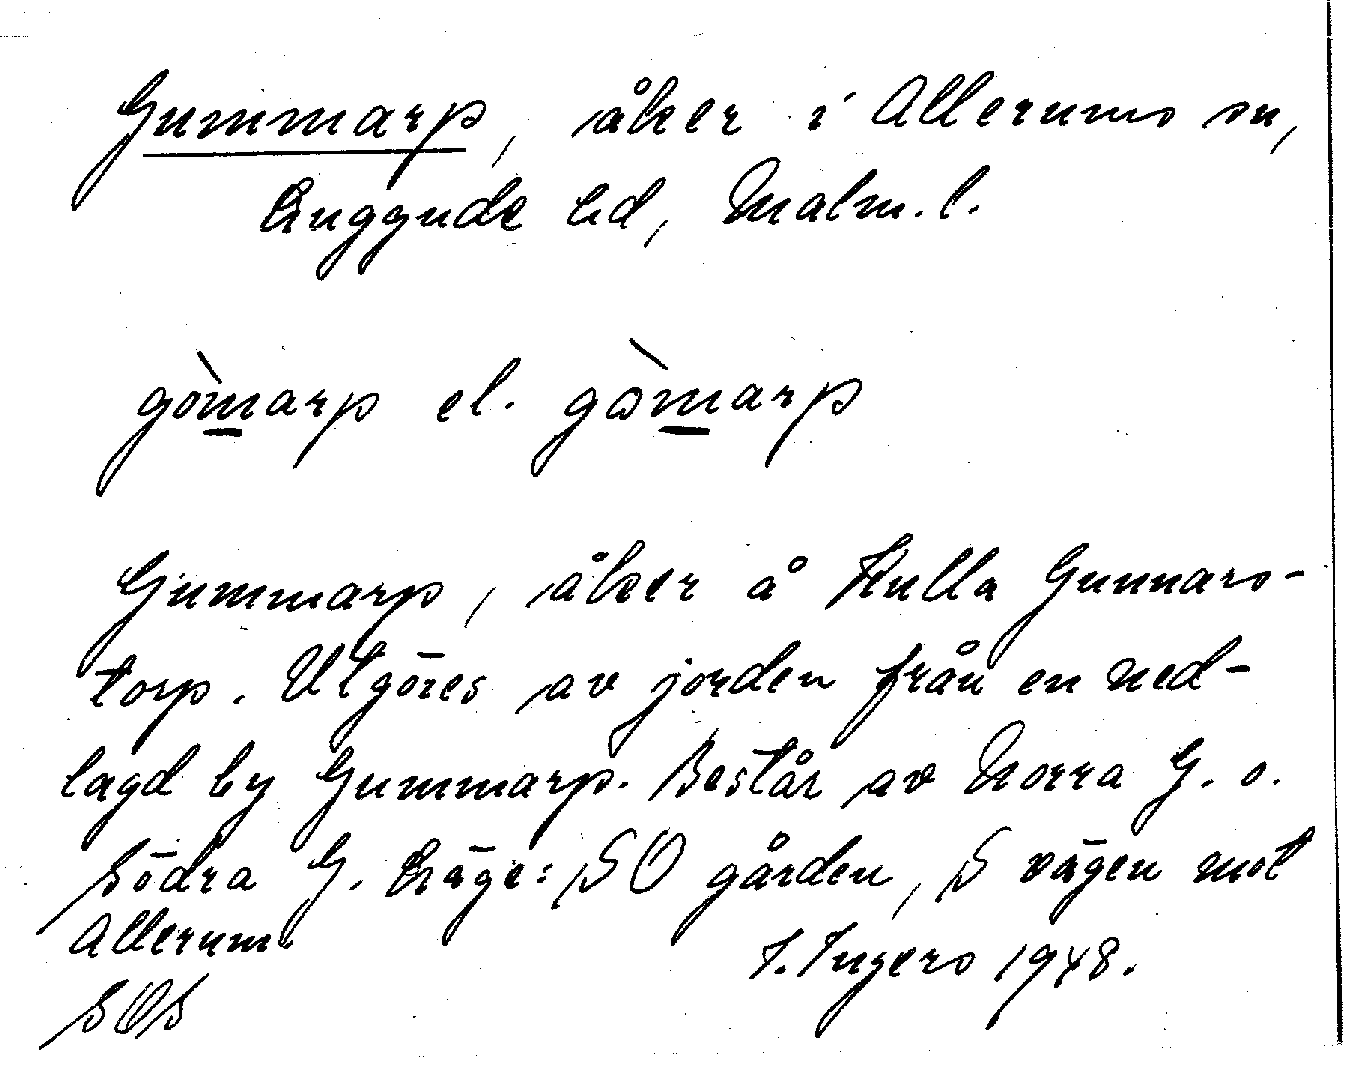 Gummarp, åker i Allerums sn,
Luggude hd, Malm. l.
gòmarp el. gòmarp
Gummarp, åker å Kulla Gunnars-
torp. Utgöres av jorden från en ned-
lagd by Gummarp. Består av Norra G. o.
Södra G. Läge: SO gården, S vägen mot
Allerum.
I. Ingers 1948.
SOS